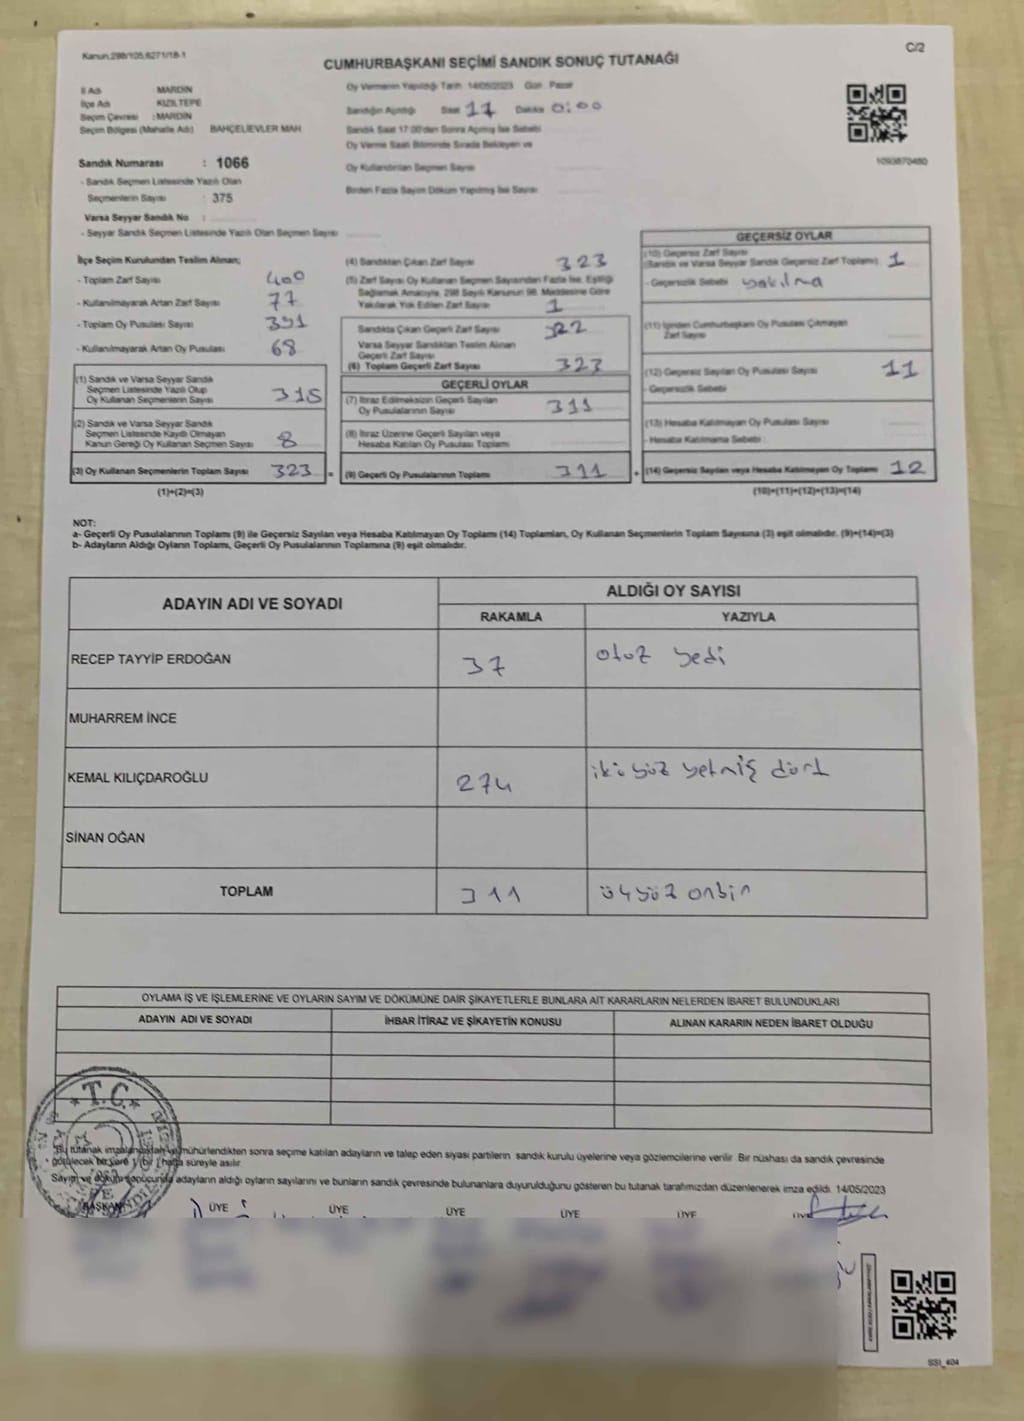 Kanun:298/105,6271/18-1
C/2
CUMHURBAŞKANI SEÇİMİ SANDIK SONUÇ TUTANAĞI
İl Adı MARDİN
İlçe Adı KIZILTEPE
Seçim Çevresi : MARDİN
Seçim Bölgesi (Mahalle Adı) BAHÇELİEVLER MAH.
Sandık Numarası : 1066
- Sandık Seçmen Listesinde Yazılı Olan
Seçmenlerin Sayısı : 375
Varsa Seyyar Sandık No :
- Seyyar Sandık Seçmen Listesinde Yazılı Olan Seçmen Sayısı
Oy Vermenin Yapıldığı Tarih 14/05/2023 Gün Pazar
Sandığın Açıldığı Saat 17 Dakika 0:00
Sandık Saat 17:00'den Sonra Açılmış İse Sebebi
Oy Verme Saati Bitiminde Sırada Bekleyen ve
Oy Kullandırılan Seçmen Sayısı
Birden Fazla Sayım Döküm Yapılmış İse Sayısı
1093870480
İlçe Seçim Kurulundan Teslim Alınan;
- Toplam Zarf Sayısı 400
- Kullanılmayarak Artan Zarf Sayısı 77
- Toplam Oy Pusulası Sayısı 391
- Kullanılmayarak Artan Oy Pusulası 68
(1) Sandık ve Varsa Seyyar Sandık
Seçmen Listesinde Yazılı Olup
Oy Kullanan Seçmenlerin Sayısı 315
(2) Sandık ve Varsa Seyyar Sandık
Seçmen Listesinde Kaydı Olmayan
Kanun Gereği Oy Kullanan Seçmen Sayısı 8
(3) Oy Kullanan Seçmenlerin Toplam Sayısı 323 =
(1)+(2)=(3)
(4) Sandıktan Çıkan Zarf Sayısı 323
(5) Zarf Sayısı Oy Kullanan Seçmen Sayısından Fazla İse, Eşitliği
Sağlamak Amacıyla, 298 Sayılı Kanunun 98. Maddesine Göre
Yakılarak Yok Edilen Zarf Sayısı 1
Sandıkta Çıkan Geçerli Zarf Sayısı 322
Varsa Seyyar Sandıktan Teslim Alınan
Geçerli Zarf Sayısı
(6) Toplam Geçerli Zarf Sayısı 323
GEÇERLİ OYLAR
(7) İtiraz Edilmeksizin Geçerli Sayılan
Oy Pusulalarının Sayısı 311
(8) İtiraz Üzerine Geçerli Sayılan veya
Hesaba Katılan Oy Pusulası Toplamı
(9) Geçerli Oy Pusulalarının Toplamı 311 +
GEÇERSİZ OYLAR
(10) Geçersiz Zarf Sayısı
(Sandık ve Varsa Seyyar Sandık Geçersiz Zarf Toplamı) 1
- Geçersizlik Sebebi yakılma
(11) İçinden Cumhurbaşkanı Oy Pusulası Çıkmayan
Zarf Sayısı
(12) Geçersiz Sayılan Oy Pusulası Sayısı 11
- Geçersizlik Sebebi
(13) Hesaba Katılmayan Oy Pusulası Sayısı
- Hesaba Katılmama Sebebi :
(14) Geçersiz Sayılan veya Hesaba Katılmayan Oy Toplamı 12
(10)+(11)+(12)+(13)=(14)
NOT:
a- Geçerli Oy Pusulalarının Toplamı (9) ile Geçersiz Sayılan veya Hesaba Katılmayan Oy Toplamı (14) Toplamları, Oy Kullanan Seçmenlerin Toplam Sayısına (3) eşit olmalıdır. (9)+(14)=(3)
b- Adayların Aldığı Oyların Toplamı, Geçerli Oy Pusulalarının Toplamına (9) eşit olmalıdır.
ADAYIN ADI VE SOYADI ALDIĞI OY SAYISI
RAKAMLA YAZIYLA
RECEP TAYYİP ERDOĞAN 37 otuz yedi
MUHARREM İNCE
KEMAL KILIÇDAROĞLU 274 iki yüz yetmiş dört
SİNAN OĞAN
TOPLAM 311 üçyüz onbir
OYLAMA İŞ VE İŞLEMLERİNE VE OYLARIN SAYIM VE DÖKÜMÜNE DAİR ŞİKAYETLERLE BUNLARA AİT KARARLARIN NELERDEN İBARET BULUNDUKLARI
ADAYIN ADI VE SOYADI İHBAR İTİRAZ VE ŞİKAYETİN KONUSU ALINAN KARARIN NEDEN İBARET OLDUĞU
T.C.
Bu tutanak imzalandıktan ve mühürlendikten sonra seçime katılan adayların ve talep eden siyasi partilerin sandık kurulu üyelerine veya gözlemcilerine verilir. Bir nüshası da sandık çevresinde
görülecek bir yere 1 (bir) hafta süreyle asılır.
Sayım ve döküm sonucunda adayların aldığı oyların sayılarını ve bunların sandık çevresinde bulunanlara duyurulduğunu gösteren bu tutanak tarafımızdan düzenlenerek imza edildi. 14/05/2023
BAŞKAN ÜYE ÜYE ÜYE ÜYE ÜYE ÜYE
SSI_404